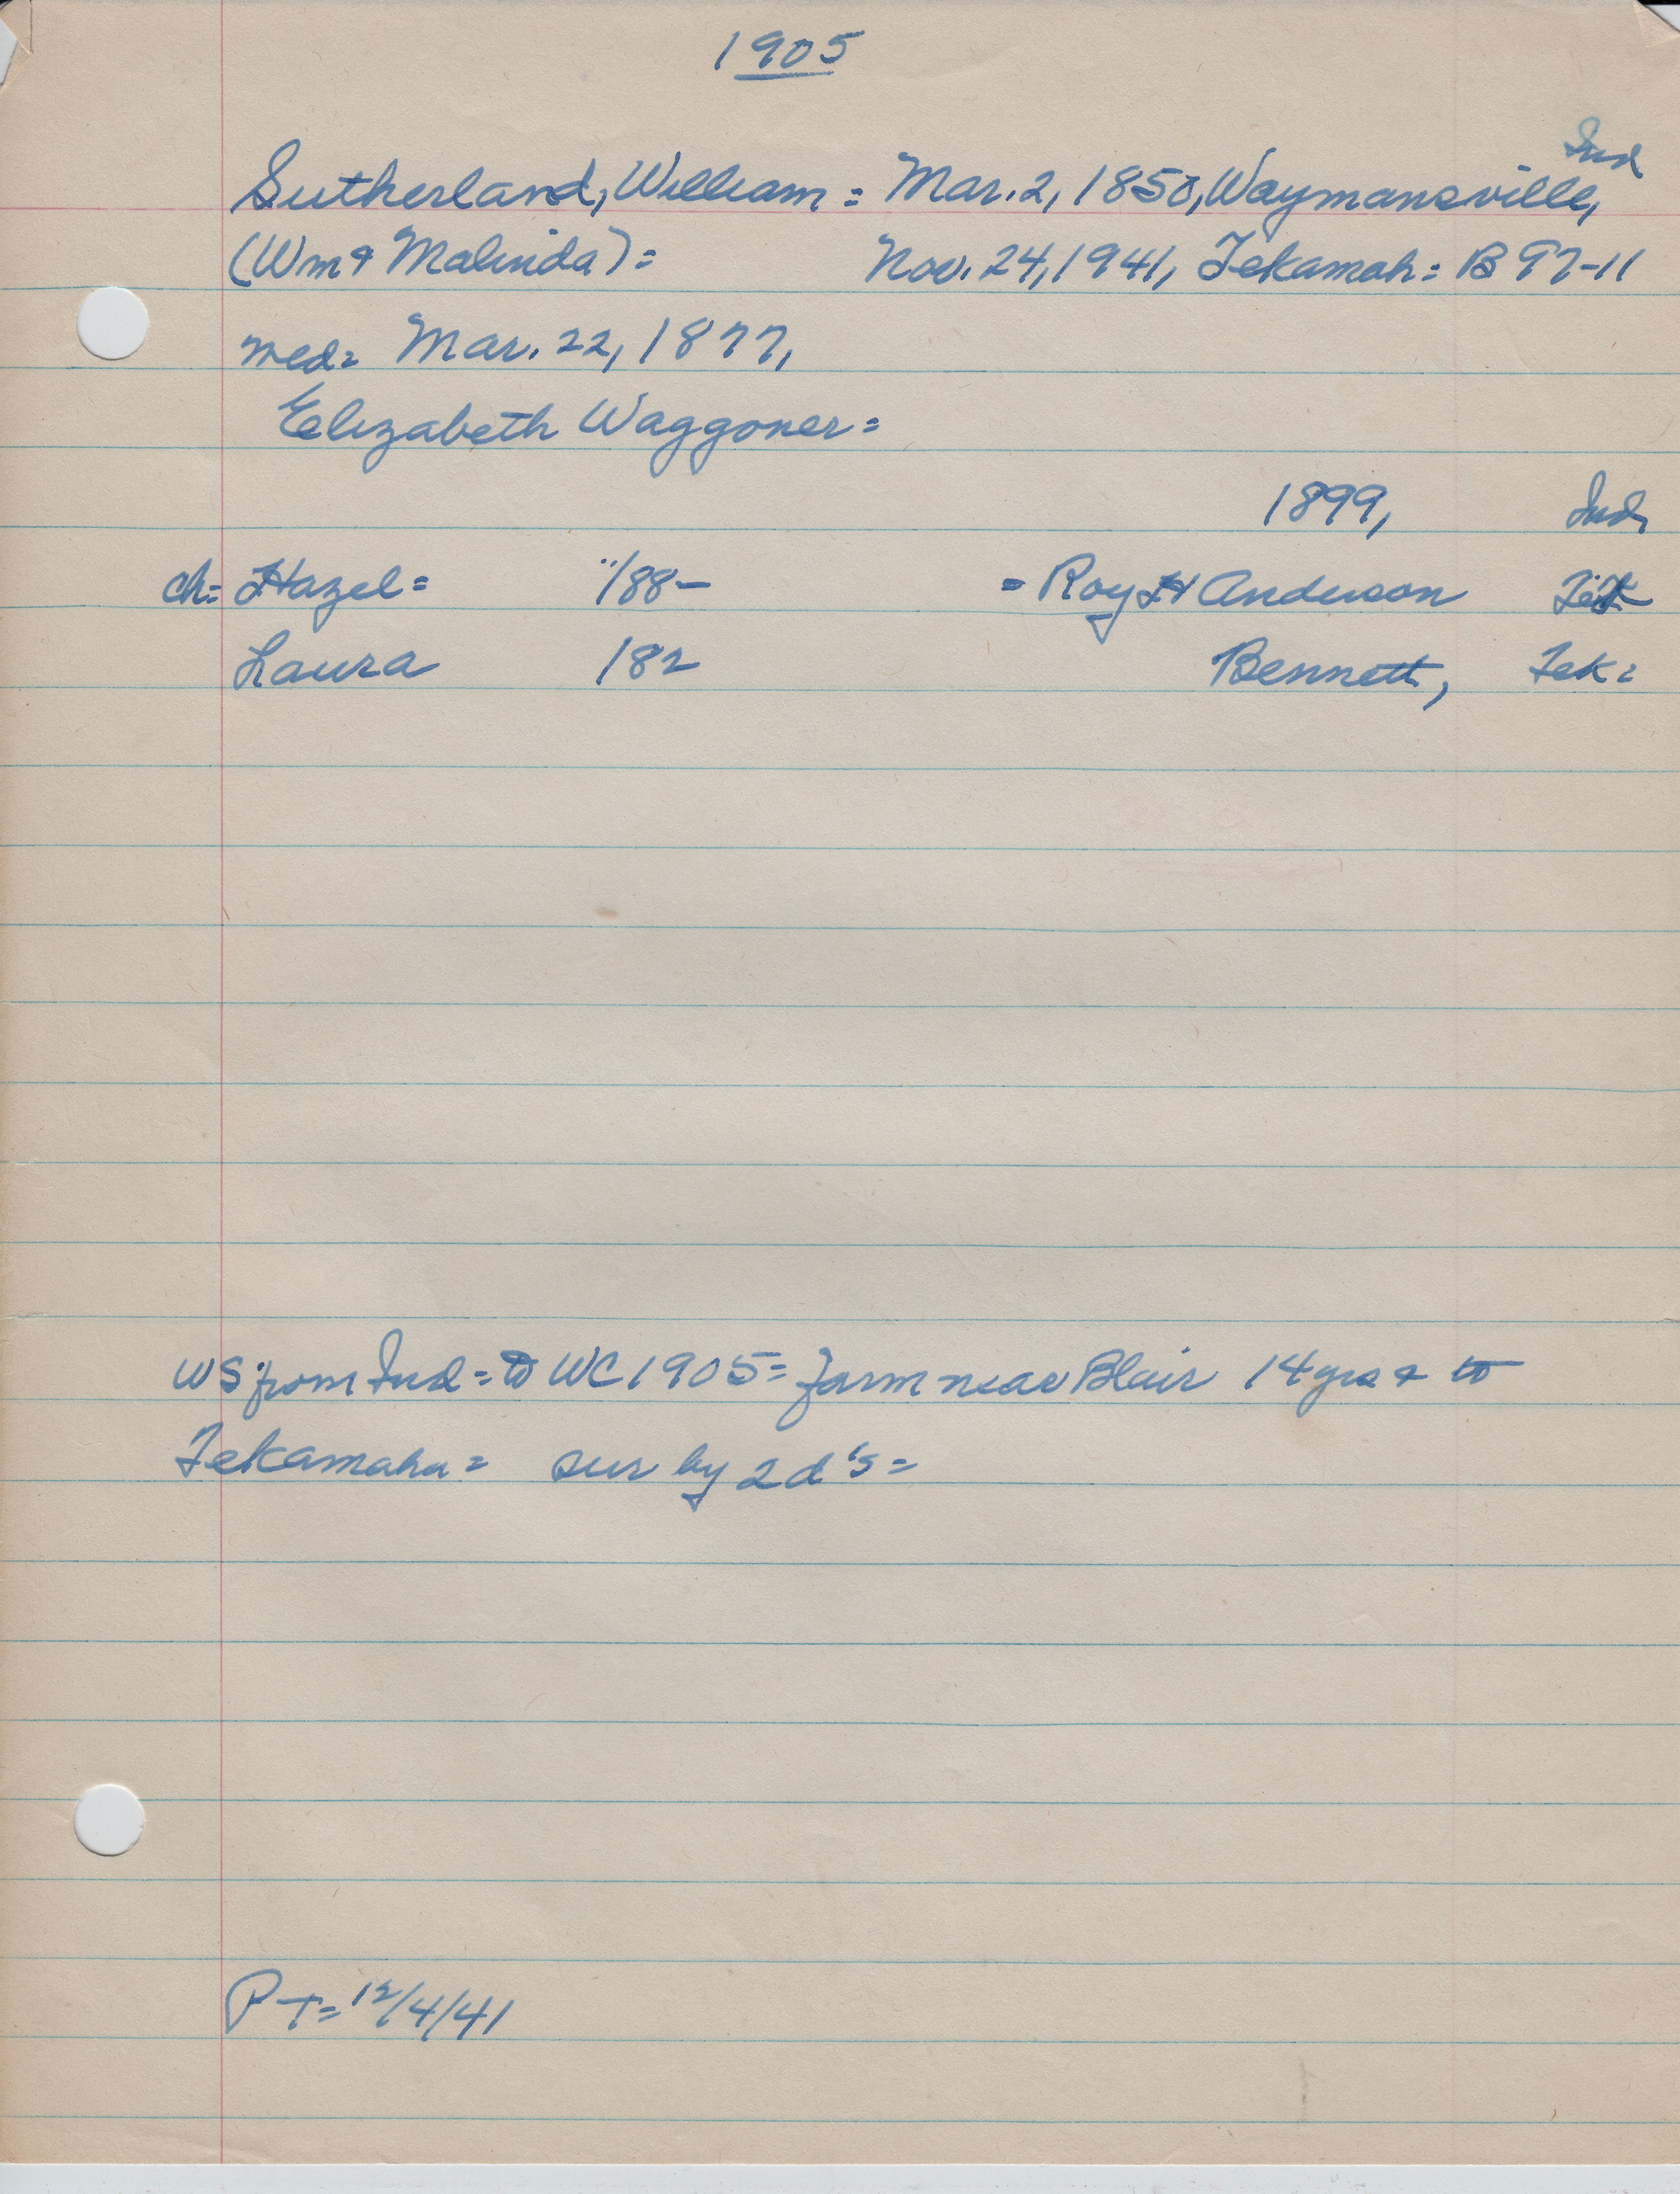 1905
Ind
Sutherland, William = Mar. 2, 1850, Waymansville,
(Wm & Malinda) = Nov. 24, 1941, Tekamah = B 97-11
med = Mar. 22, 1877,
Elizabeth Waggoner =
1899, Ind,
ch = Hazel = 188- = Roy H Anderson Tek
Laura 182 Bennett, Tek =
WS from Ind = to WC 1905 = farm near Blair 14 yrs & to
Tekamaha = sur by 2 d's =
PT = 12/4/41